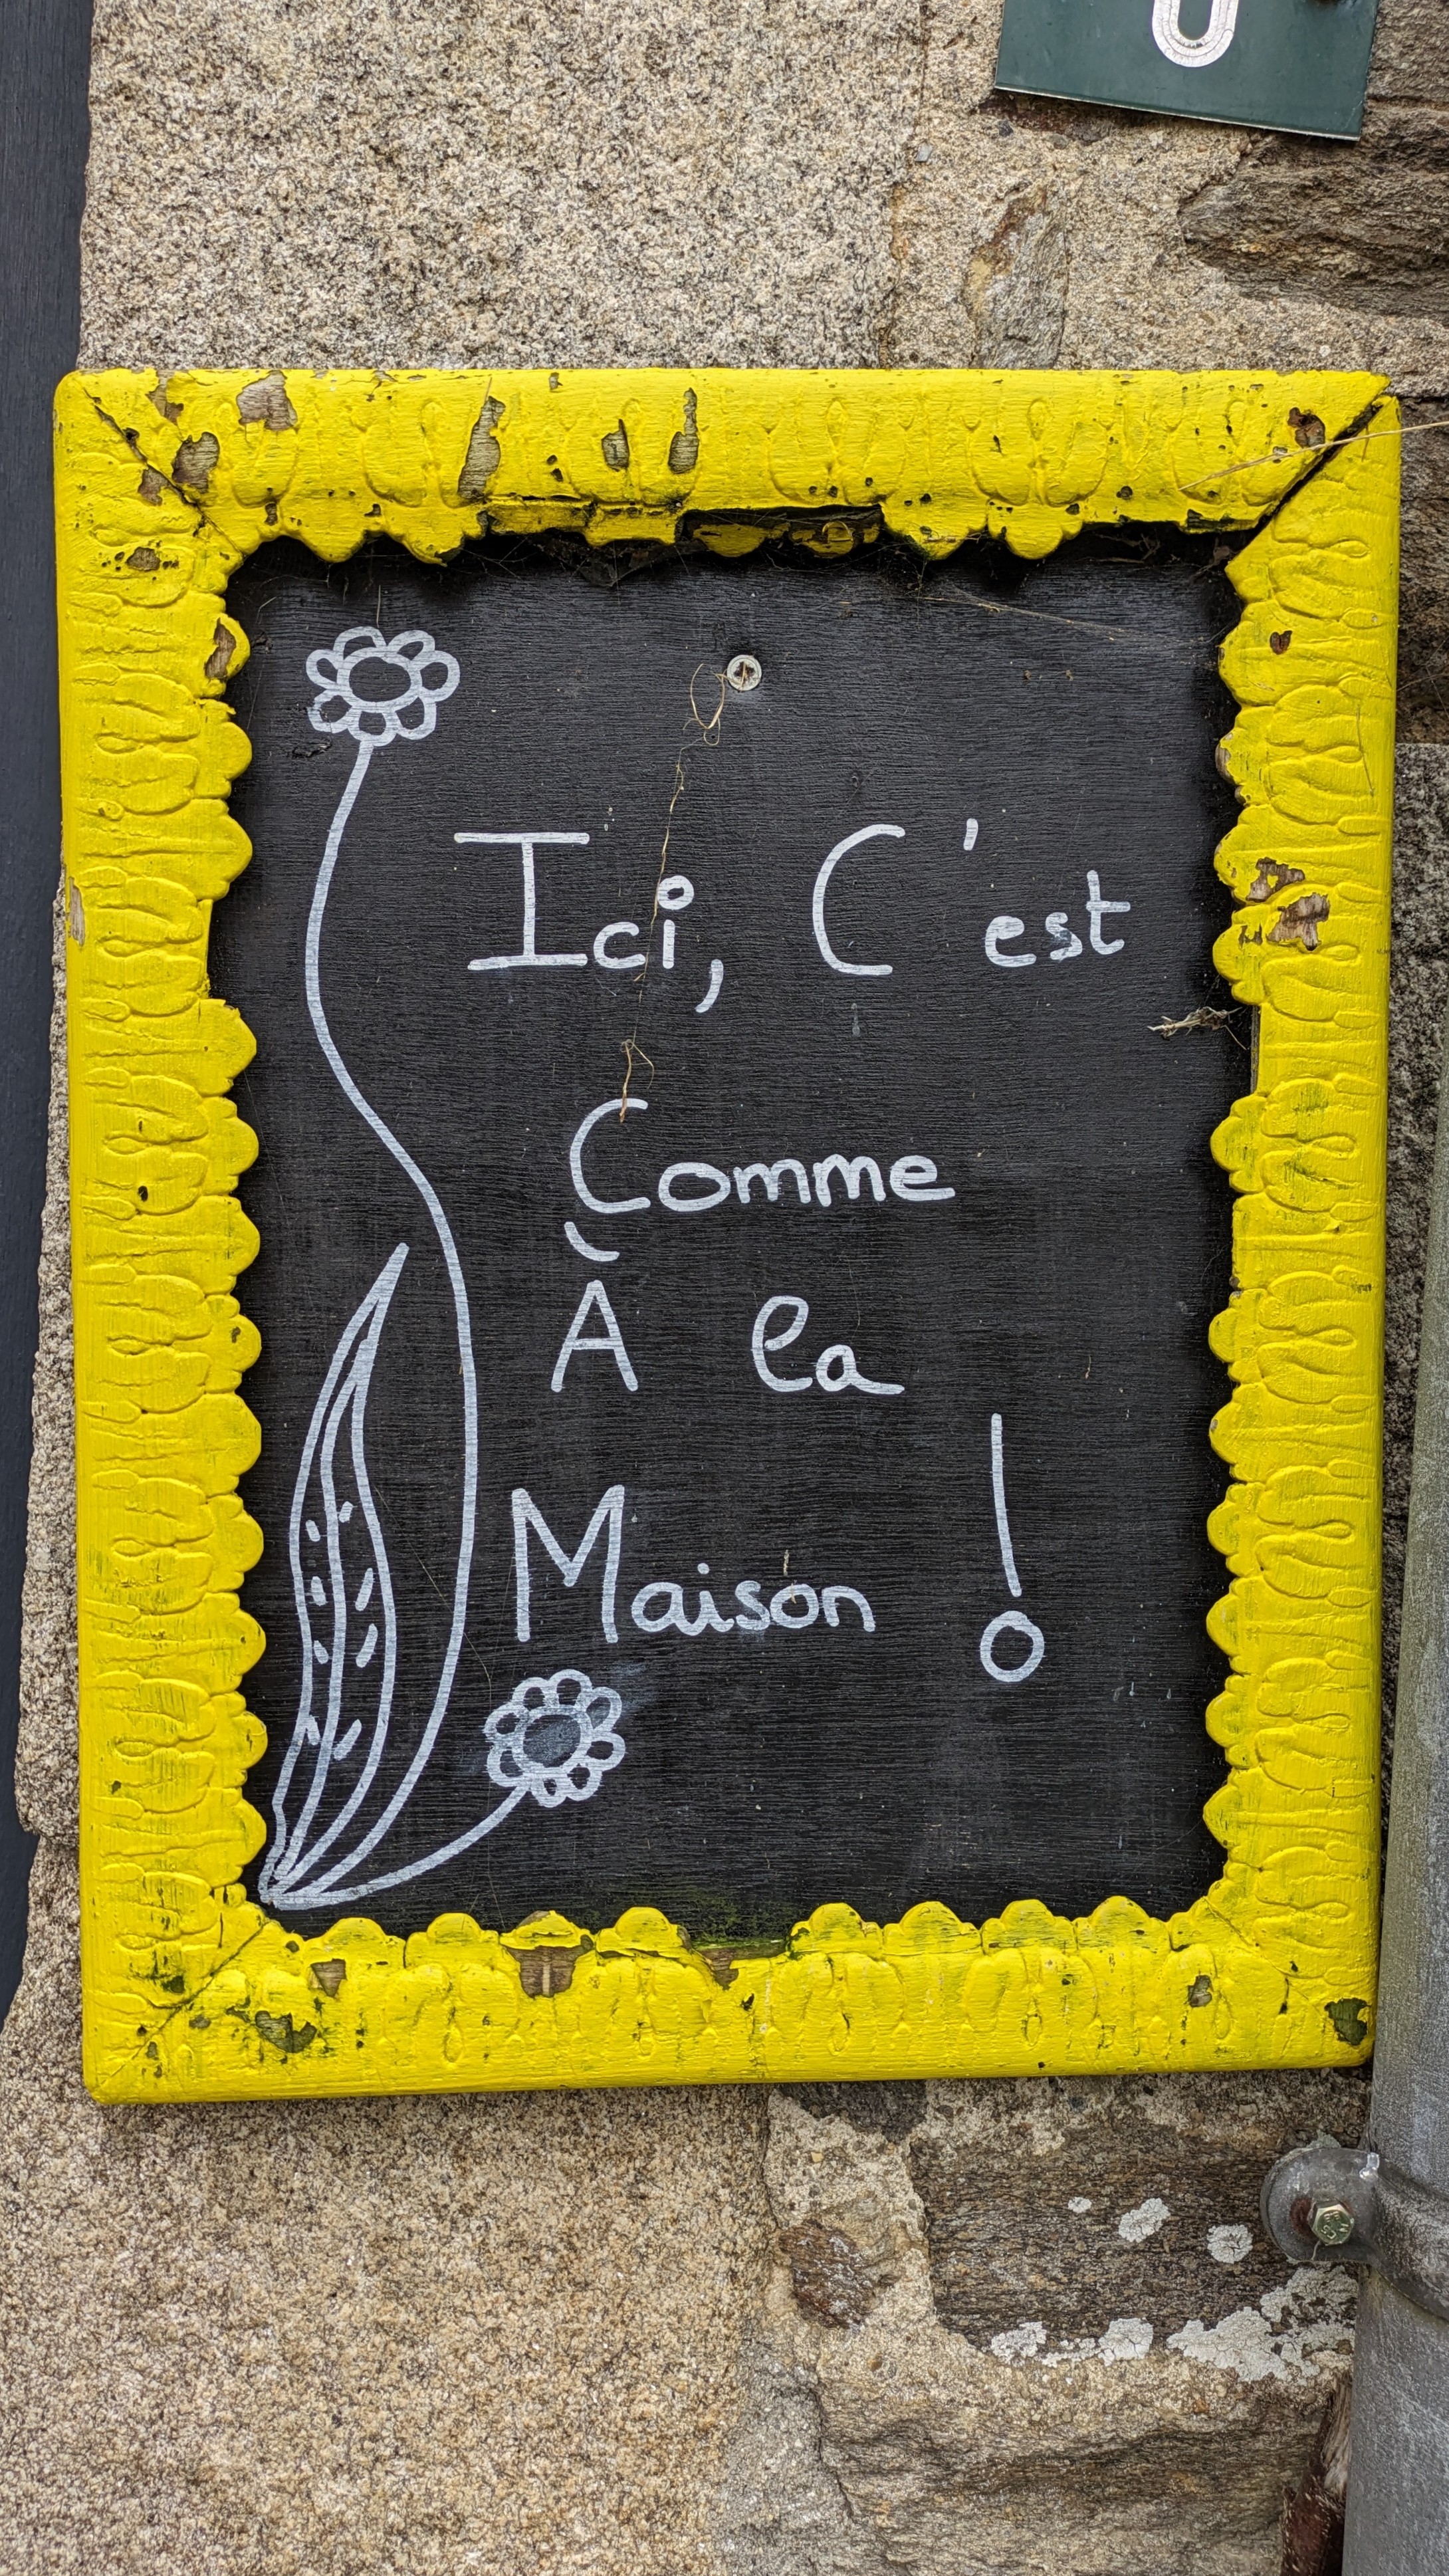 Ici, C'est
Comme
À la
Maison !